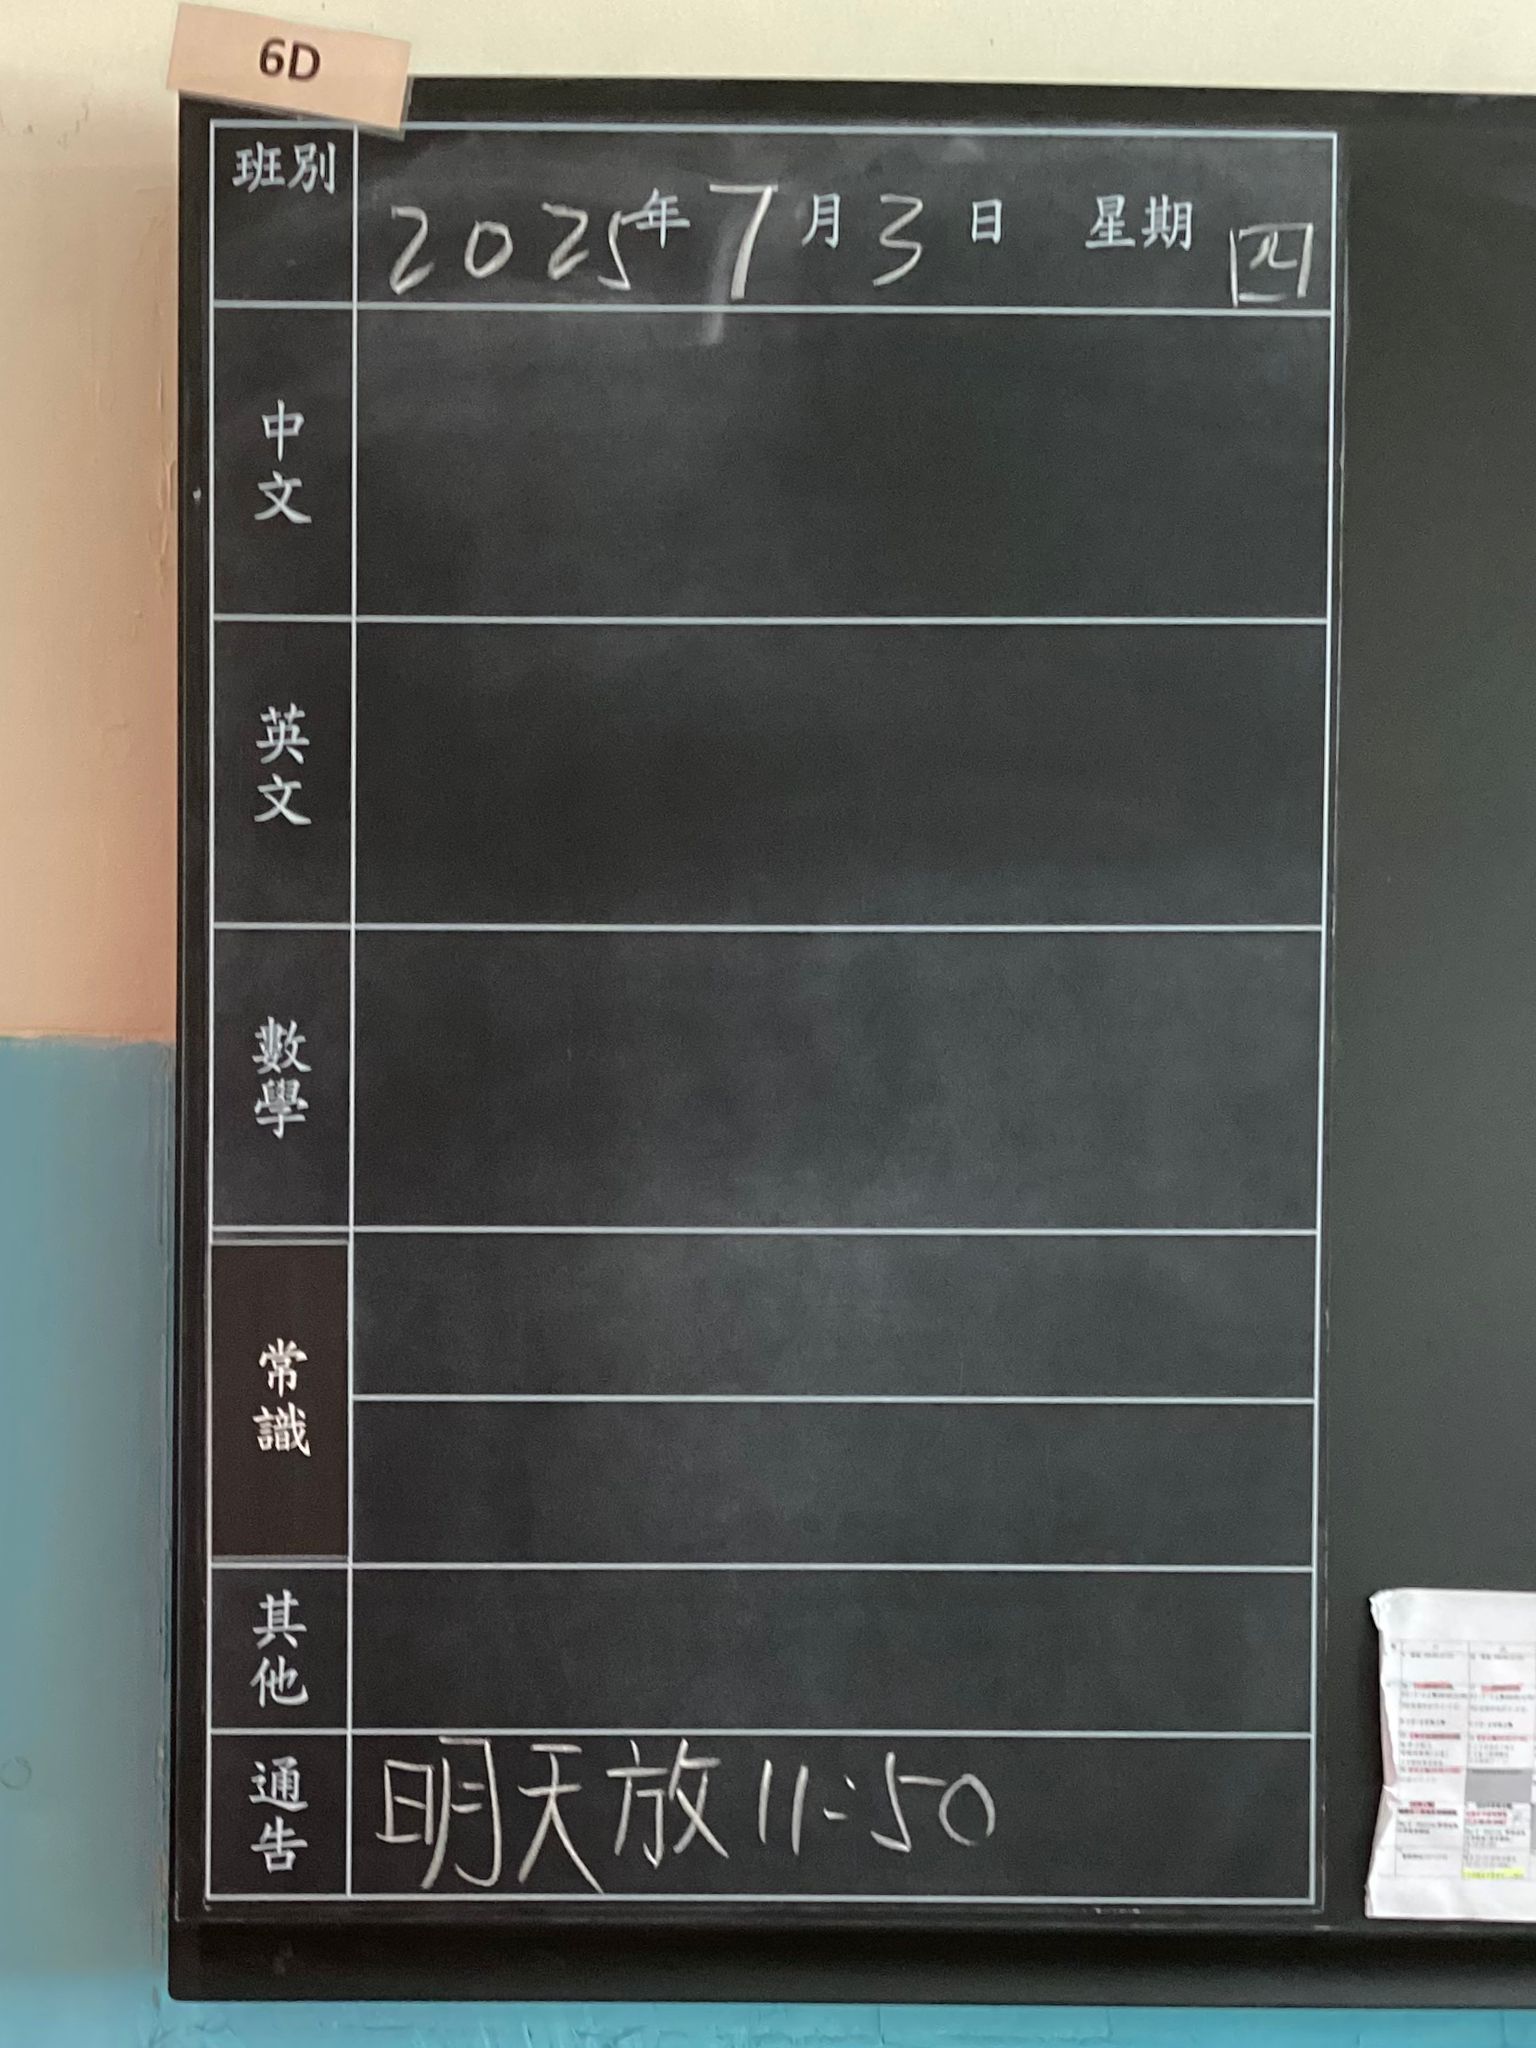 6D
班別
2025年7月3日 星期四
中文
英文
數學
常識
其他
通告
明天放11:50